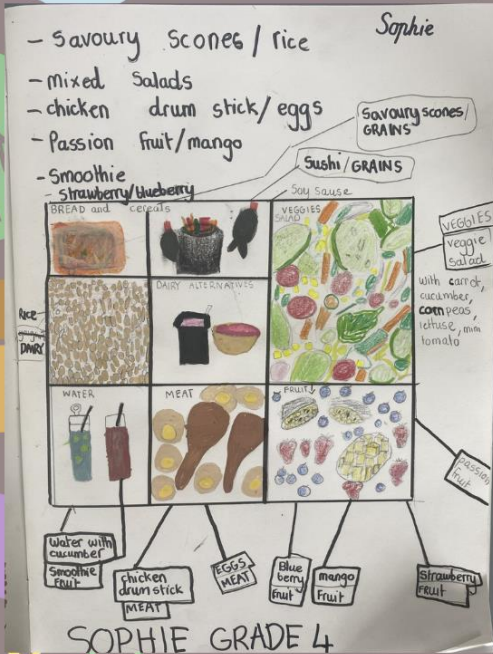 Sophie
- Savoury Scones / rice
- mixed Salads
- chicken drum stick / eggs
- Passion fruit/mango
- Smoothie
- strawberry/blueberry
Savoury scones/
GRAINS
Sushi/GRAINS
Soy sause
BREAD and cereals
VEGGIES
SALAD
VEGGIES
veggie
salad
with carrot,
cucumber,
corn peas,
lettuse, mini
tomato
DAIRY ALTERNATIVES
RICE
DAIRY
WATER
MEAT
FRUITS
passion
fruit
Water with
cucumber
Smoothie
fruit
chicken
drum stick
MEAT
EGGS
MEAT
Blue
berry
fruit
mango
Fruit
Strawberry
FRUIT
SOPHIE GRADE 4